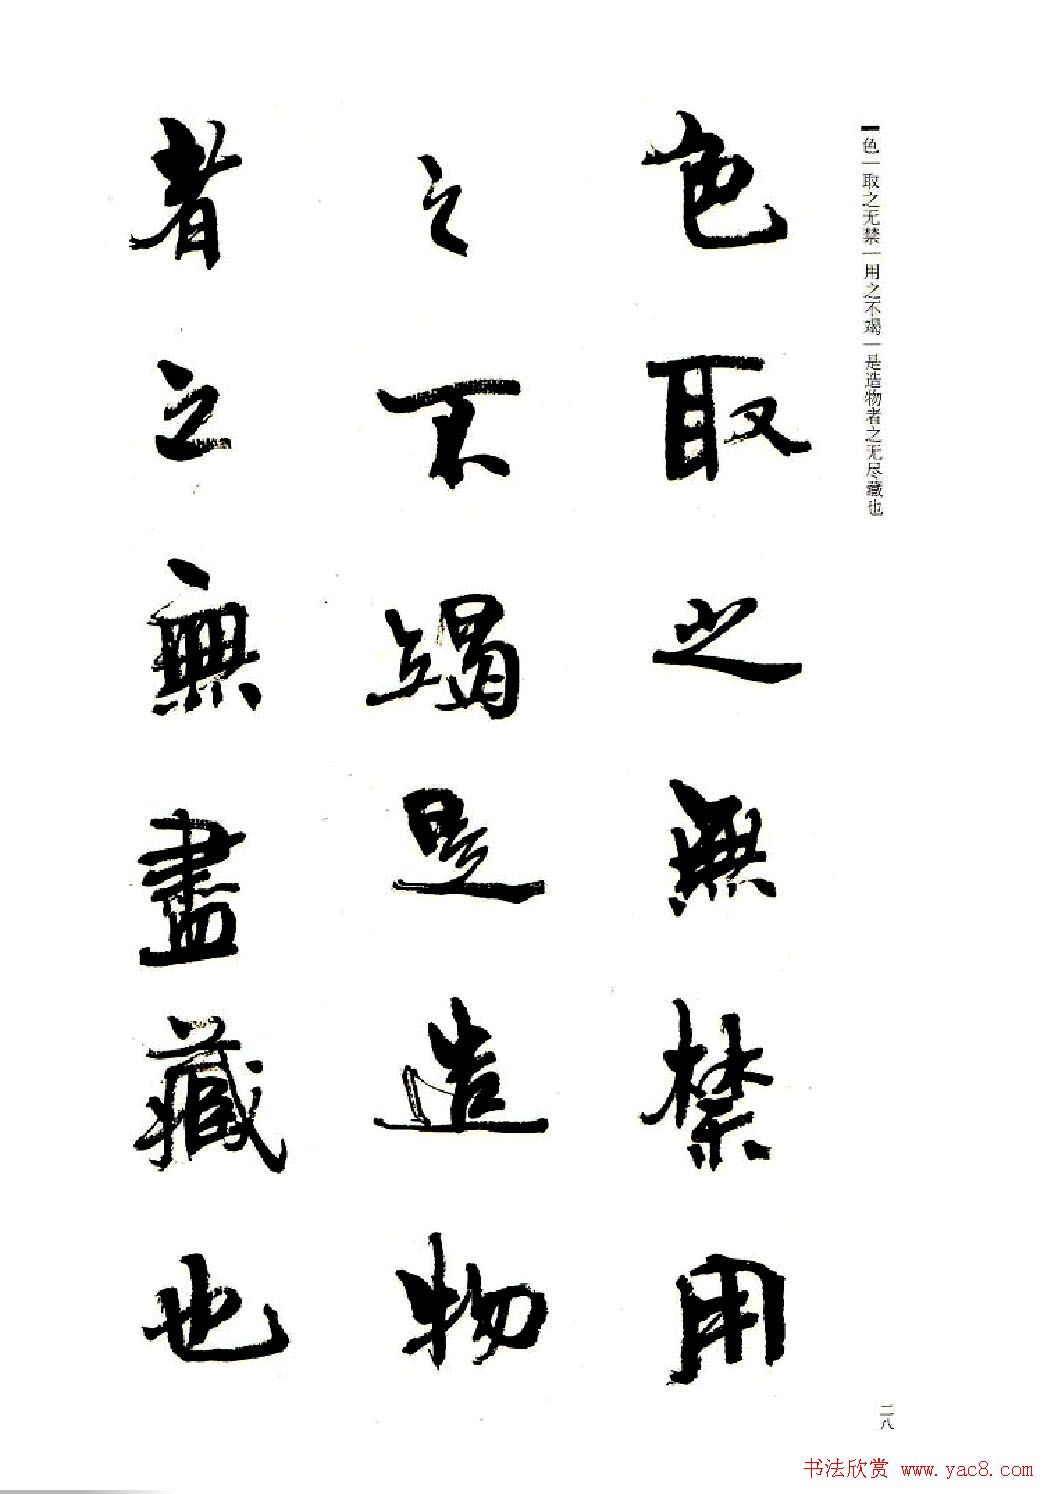 ▎色｜取之无禁｜用之不竭｜是造物者之无尽藏也
色取之無禁用
之不竭是造物
者之無盡藏也
二八
书法欣赏 www.yac8.com